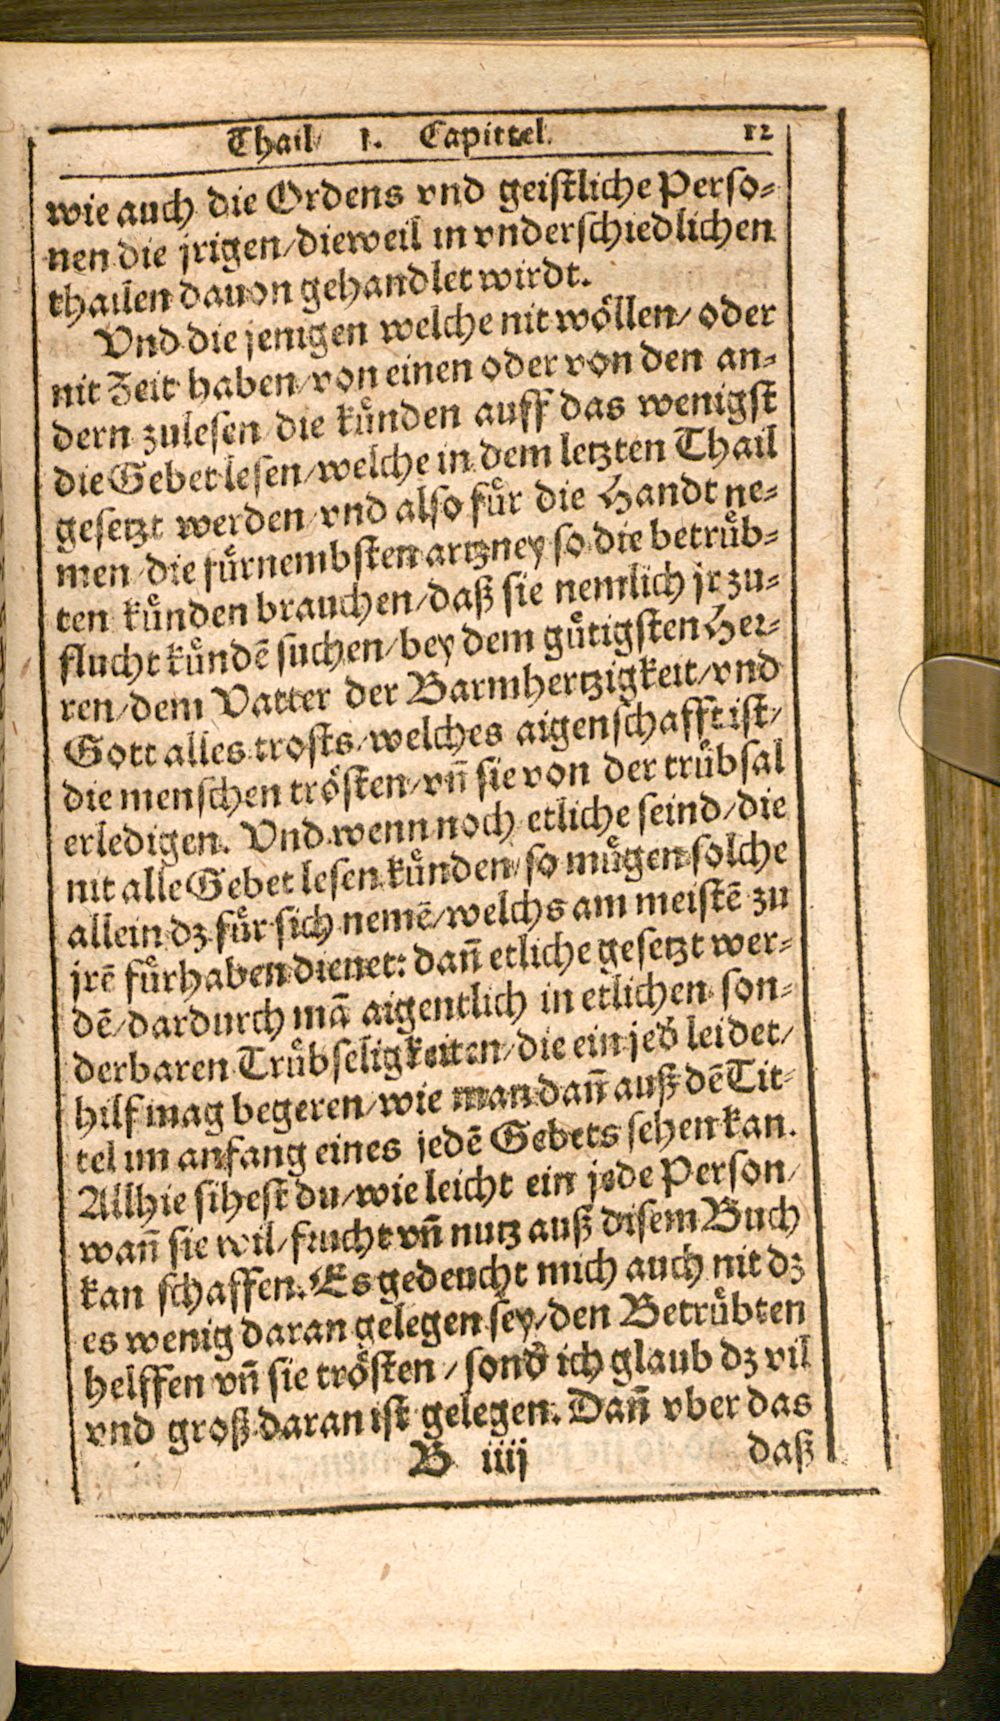 Thail/ I. Capittel. 12
wie auch die Ordens vnd geistliche Perso-
nen die jrigen/dieweil in vnderschiedlichen
thailen dauon gehandlet wirdt.
Vnd die jenigen welche nit wöllen/ oder
nit Zeit haben/von einen oder von den an-
dern zulesen/die künden auff das wenigst
die Gebet lesen/welche in dem letzten Thail
gesetzt werden/vnd also für die Handt ne-
men/die fürnembsten artzney so die betrüb-
ten künden brauchen/daß sie nemlich jr zu-
flucht kündē suchen/bey dem gütigsten Her-
ren/dem Vatter der Barmhertzigkeit/vnd
Gott alles trosts/welches aigenschafft ist/
die menschen trösten/vñ sie von der trübsal
erledigen. Vnd wenn noch etliche seind/die
nit alle Gebet lesen künden/so mügen solche
allein dz für sich nemē/welchs am meistē zu
jrē fürhaben dienet: dañ etliche gesetzt wer-
dē/dardurch mā aigentlich in etlichen son-
derbaren Trübseligkeiten/die ein jed̄ leidet/
hilf mag begeren/wie man dañ auß dē Tit-
tel im anfang eines jedē Gebets sehen kan.
Allhie sihest du/wie leicht ein jede Person/
wañ sie wil/frucht vñ nutz auß disem Buch
kan schaffen. Es gedeucht mich auch nit dz
es wenig daran gelegen sey/den Betrübten
helffen vñ sie trösten/sond̄ ich glaub dz vil
vnd groß daran ist gelegen. Dañ vber das
B iiij daß